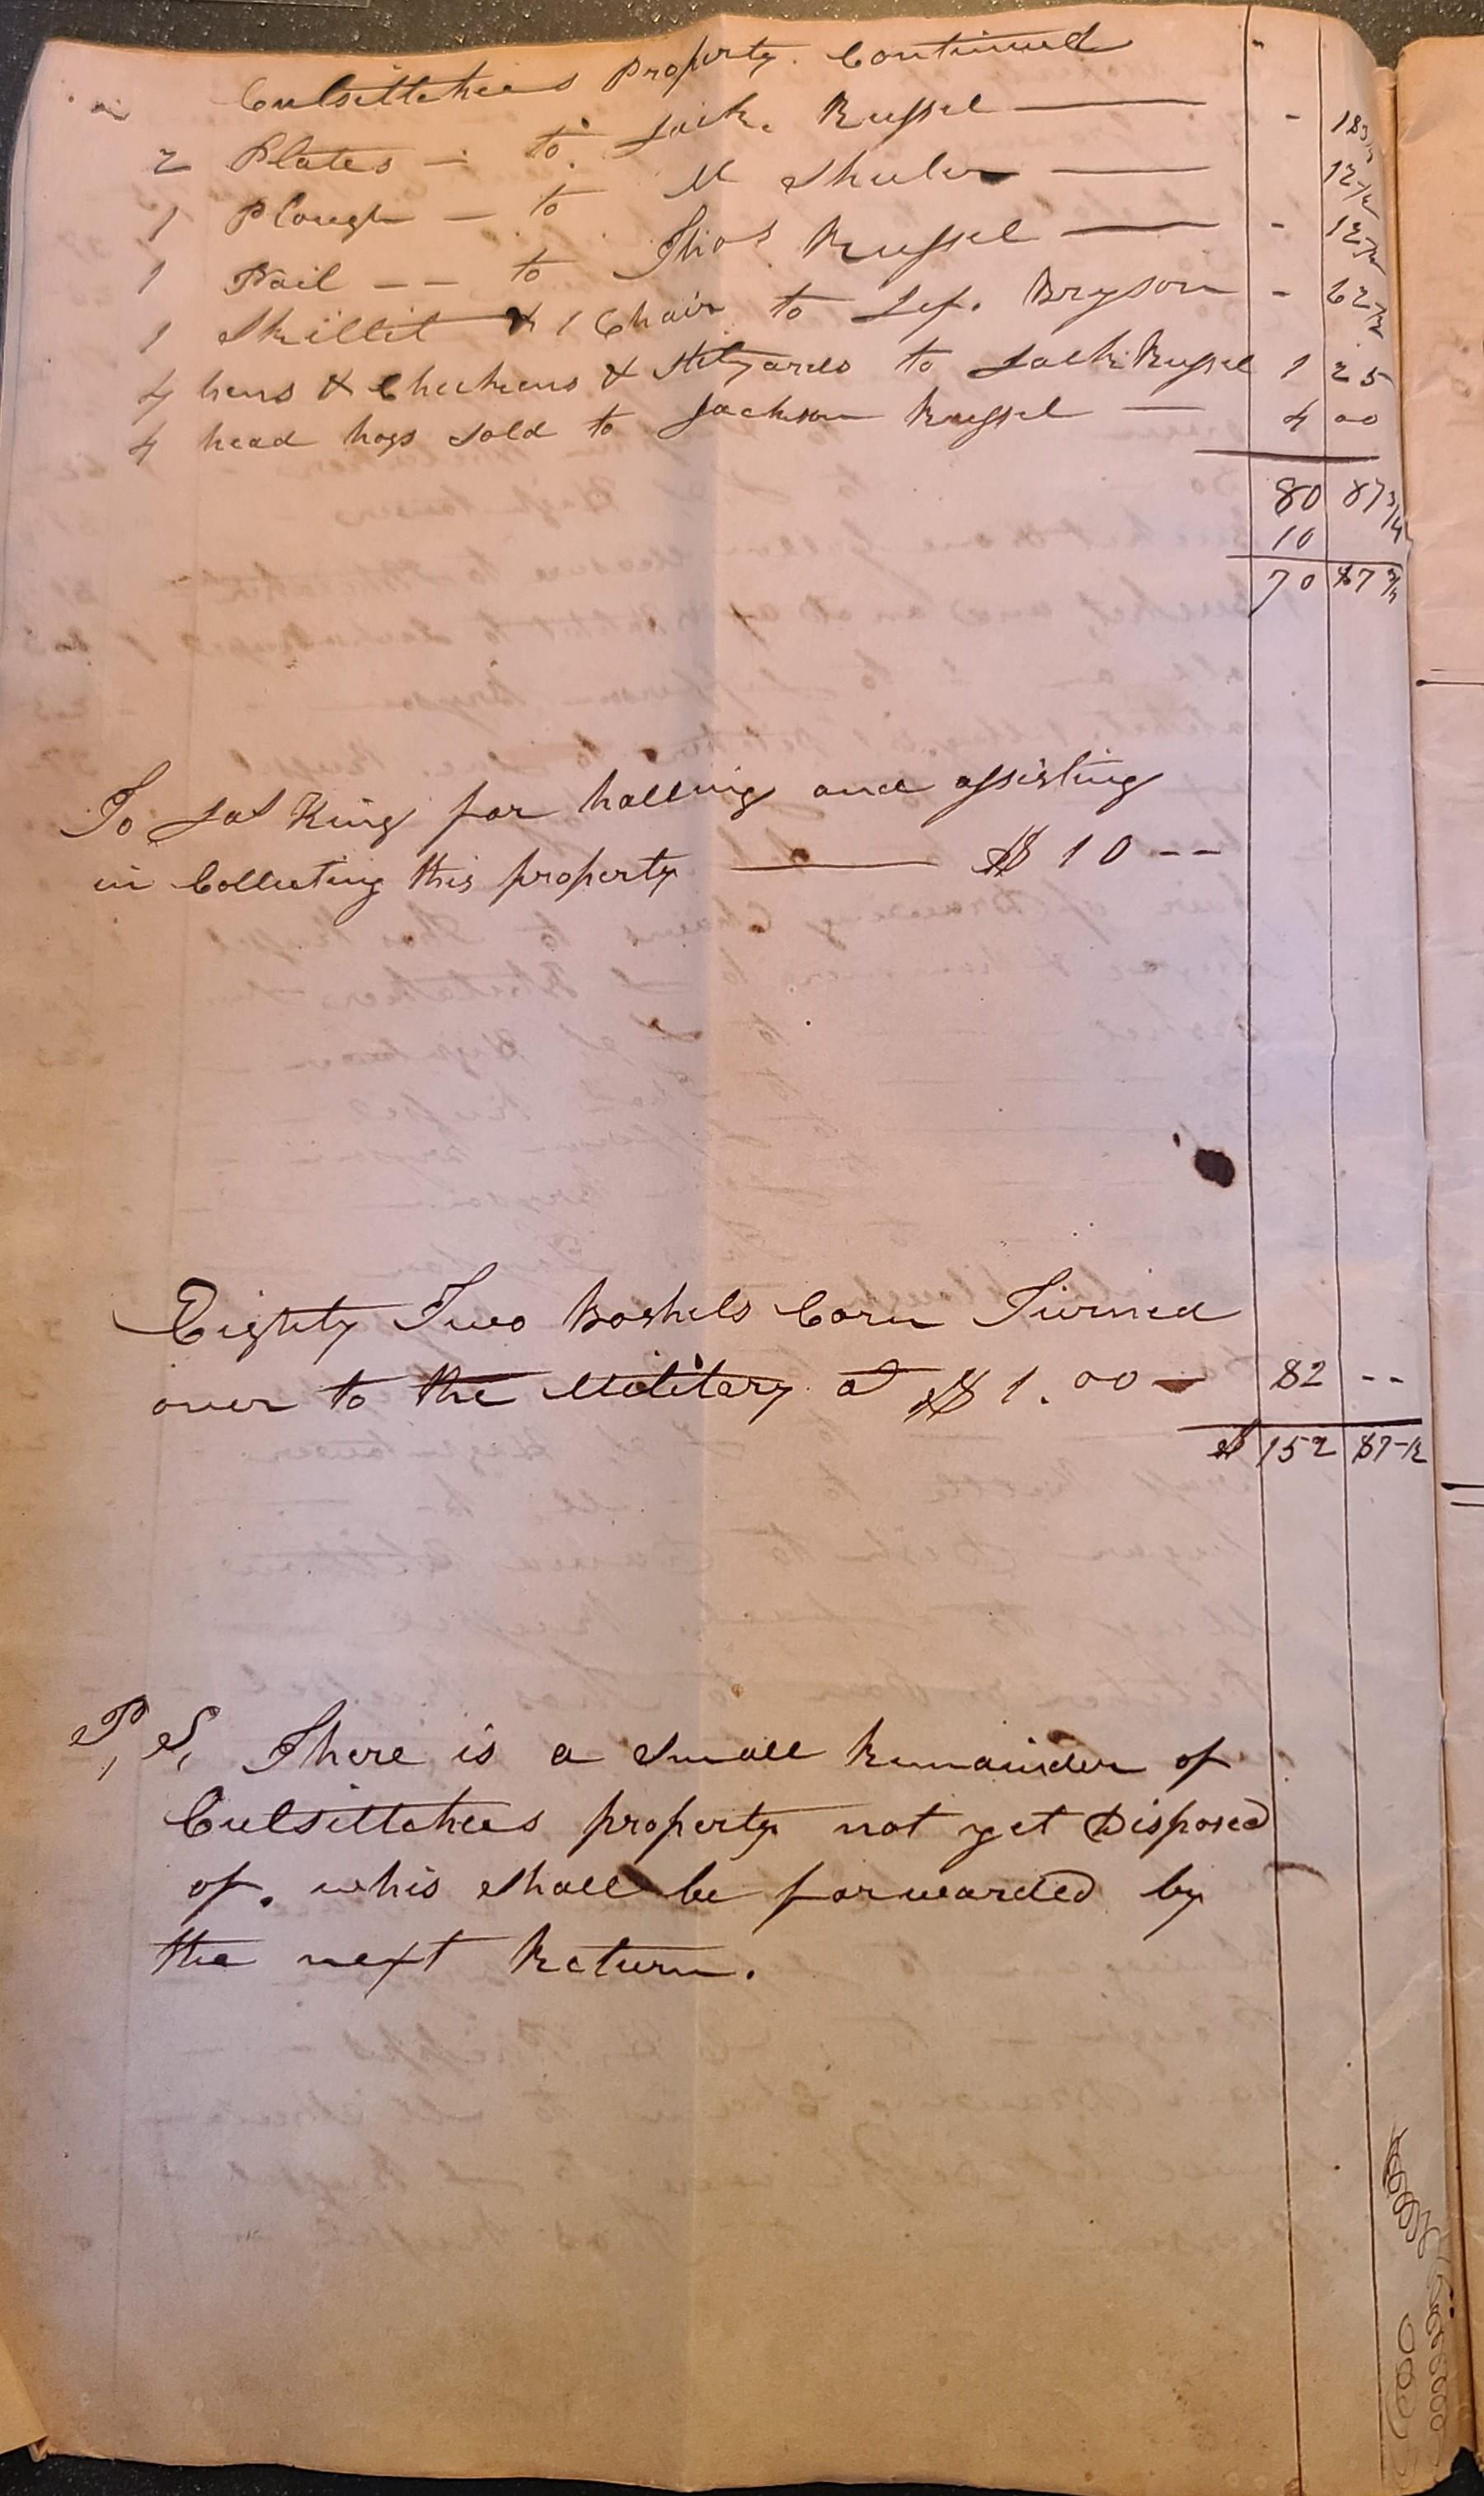 Culsittahees Property. Continued
2 Plates — to Jack. Russel — - 18 3/4
1 Plough — to M Shuler — 12 1/2
1 Pail — — to Thos Russel — - 12 1/2
1 Skillit & 1 Chair to Jef. Bryson - 62 1/2
4 hens & Checkens & Stilyards to Jack. Russel 1 25
4 head hogs sold to Jackson Russel — 4 00
80 87 3/4
10
70 87 3/4
To Jas King for halling and assisting
in Collecting this property — $ 10 --
Eighty Two Boshels Corn Turned
over to the Militery at $ 1.00 — 82 --
$ 152 87 1/2
P, S, There is a small Remainder of
Culsittahees property not yet Disposed
of. whis shall be forwarded by
the next Return.